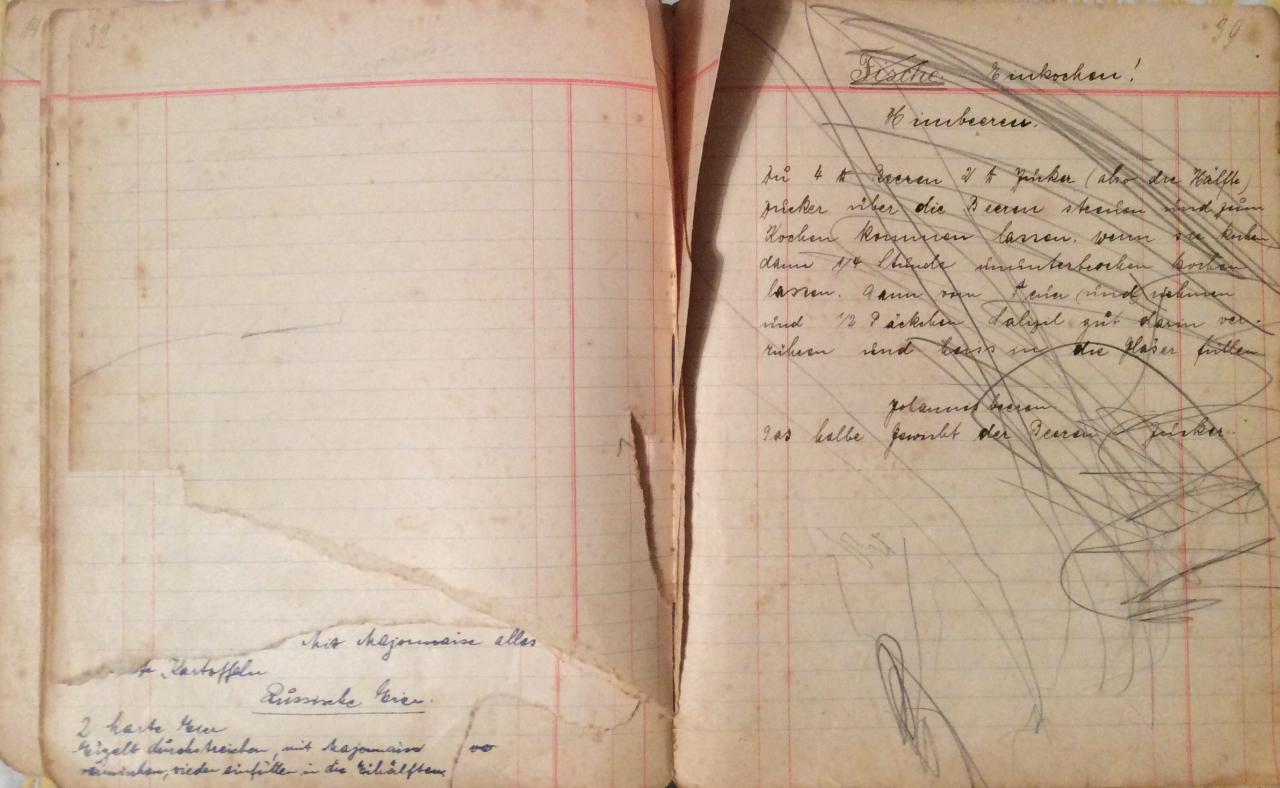 32
Mit Majonnaise alles
te Kartoffeln
Russische Eier.
2 harte Eier
Eigelb durchstreichen, mit Majonnaise
vermischen, wieder einfüllen in die Eihälften.
39
Fische. Einkochen!
Himbeeren.
Zu 4 ℔ Beeren 2 ℔ Zucker (also die Hälfte)
Zucker über die Beeren streuen und zum
Kochen kommen lassen. wenn sie kochen
dann 1/4 Stunde ununterbrochen kochen
lassen. Dann vom Feuer und nehmen
und 1/2 Päckchen Salizil gut darin ver-
rühren und heiss in die Gläser füllen
Johannisbeeren
Das halbe Gewicht der Beeren Zucker.